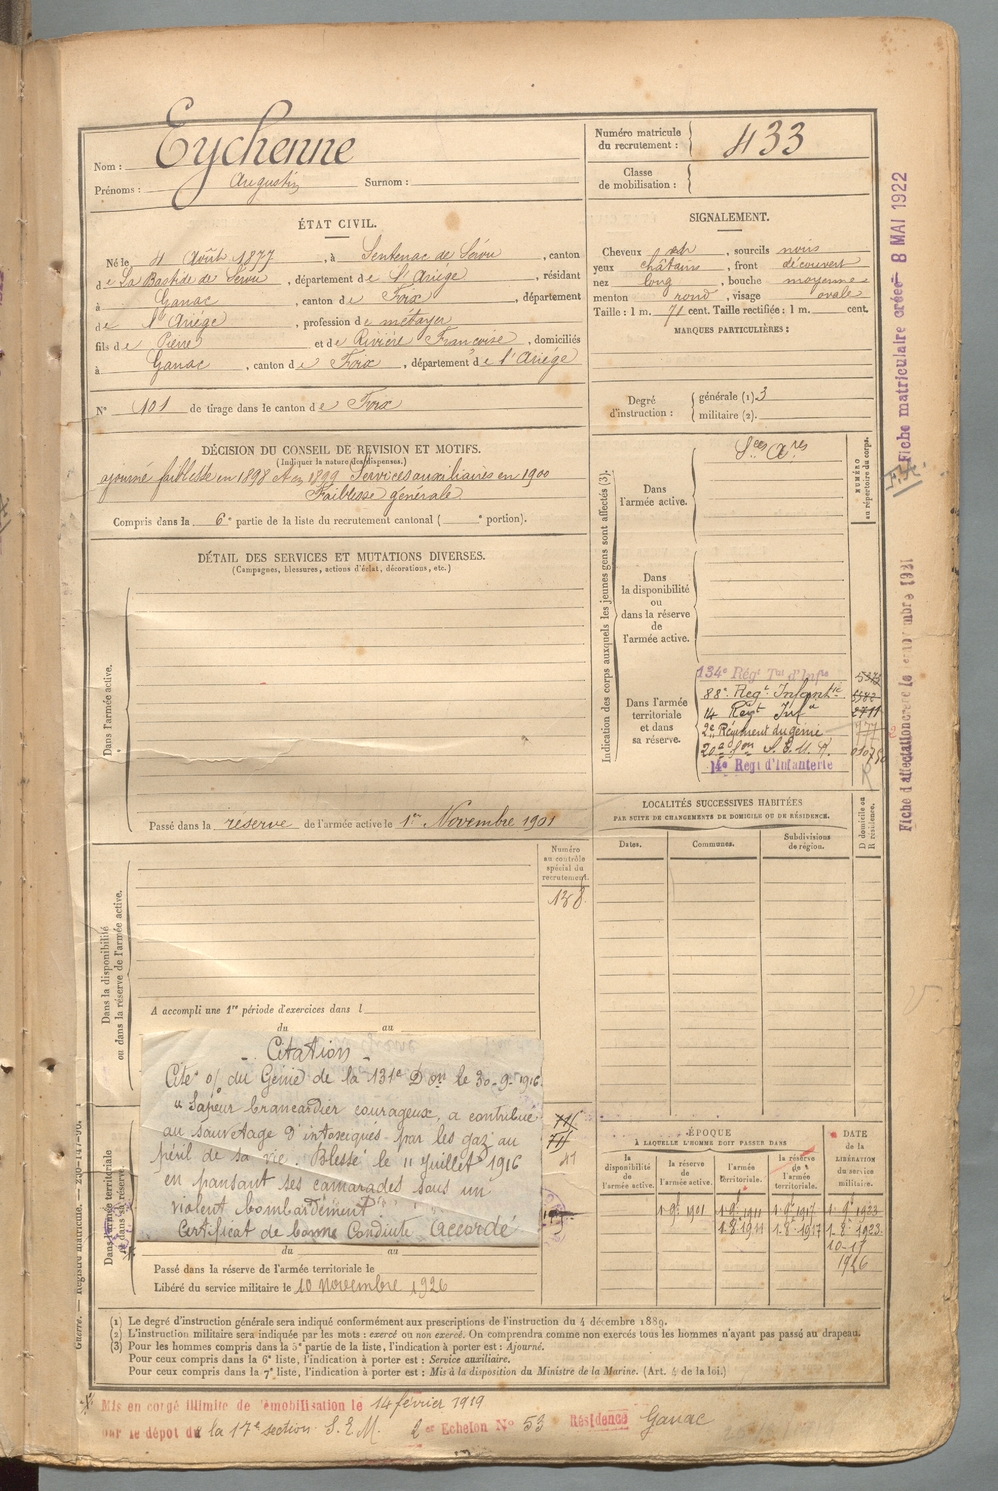 Nom : Eychenne
Prénoms : Augustin Surnom :
Numéro matricule du recrutement : 433
Classe de mobilisation :
ÉTAT CIVIL.
Né le 4 Août 1877, à Sentenac de Sérou, canton
de La Bastide de Sérou, département de L'Ariège, résidant
à Ganac, canton de Foix, département
de l'Ariége, profession de métayer
fils de Pierre et de Rivière Françoise, domiciliés
à Ganac, canton de Foix, département de l'Ariége
N° 101 de tirage dans le canton de Foix
SIGNALEMENT.
Cheveux, sourcils noirs
yeux châtains, front découvert
nez long, bouche moyenne
menton rond, visage ovale
Taille : 1 m. 71 cent. Taille rectifiée : 1 m. cent.
MARQUES PARTICULIÈRES :
Degré d'instruction : générale (1) 3
militaire (2).
DÉCISION DU CONSEIL DE REVISION ET MOTIFS.
(Indiquer la nature des dispenses.)
ajourné faiblesse en 1898 et en 1899 Services auxiliaires en 1900
Faiblesse générale
Compris dans la 6e partie de la liste du recrutement cantonal ( e portion).
DÉTAIL DES SERVICES ET MUTATIONS DIVERSES.
(Campagnes, blessures, actions d'éclat, décorations, etc.)
Dans l'armée active.
Passé dans la reserve de l'armée active le 1er Novembre 1901
Indication des corps auxquels les jeunes gens sont affectés (3).
NUMÉRO au répertoire du corps.
Dans l'armée active.
Sces Ares
Dans la disponibilité ou dans la réserve de l'armée active.
Dans l'armée territoriale et dans sa réserve.
134e Régt Tal d'Infie
88e Regt Infantie
14 Regt Infie
2711
2e Régiment du génie
777
20e Son S.E.M.
14e Regt d'Infanterie
R
LOCALITÉS SUCCESSIVES HABITÉES
PAR SUITE DE CHANGEMENTS DE DOMICILE OU DE RÉSIDENCE.
Dates. Communes. Subdivisions de région. D domicile ou R résidence.
Dans la disponibilité ou dans la réserve de l'armée active.
Numéro au contrôle spécial du recrutement.
138
A accompli une 1re période d'exercices dans l
du au
- Citation -
du Génie de la 131e Don le 30-9-1916
"Sapeur brancardier courageux, a contribué
au sauvetage d'intoxiqués par les gaz au
péril de sa vie. Blessé le 11 Juillet 1916
en pansant ses camarades sous un
violent bombardement"
Certificat de bonne Conduite Accordé
Dans l'armée territoriale et dans sa réserve.
du au
Passé dans la réserve de l'armée territoriale le
Libéré du service militaire le 10 novembre 1926
ÉPOQUE
À LAQUELLE L'HOMME DOIT PASSER DANS
la disponibilité de l'armée active. la réserve de l'armée active. l'armée territoriale. la réserve de l'armée territoriale.
DATE de la LIBÉRATION du service militaire.
1-9bre 1901 1-9bre 1911 1-9bre 1917 1-9bre 1923
1-8bre 1911 1-8bre 1917 1-8bre 1923
10-11
1926
(1) Le degré d'instruction générale sera indiqué conformément aux prescriptions de l'instruction du 4 décembre 1889.
(2) L'instruction militaire sera indiquée par les mots : exercé ou non exercé. On comprendra comme non exercés tous les hommes n'ayant pas passé au drapeau.
(3) Pour les hommes compris dans la 5e partie de la liste, l'indication à porter est : Ajourné.
Pour ceux compris dans la 6e liste, l'indication à porter est : Service auxiliaire.
Pour ceux compris dans la 7e liste, l'indication à porter est : Mis à la disposition du Ministre de la Marine. (Art. 4 de la loi.)
Mis en congé illimité de démobilisation le 14 février 1919
par le dépot du la 17e section S.E.M. 2er Echelon N° 53 Résidence Ganac
Fiche matriculaire créée 8 MAI 1922